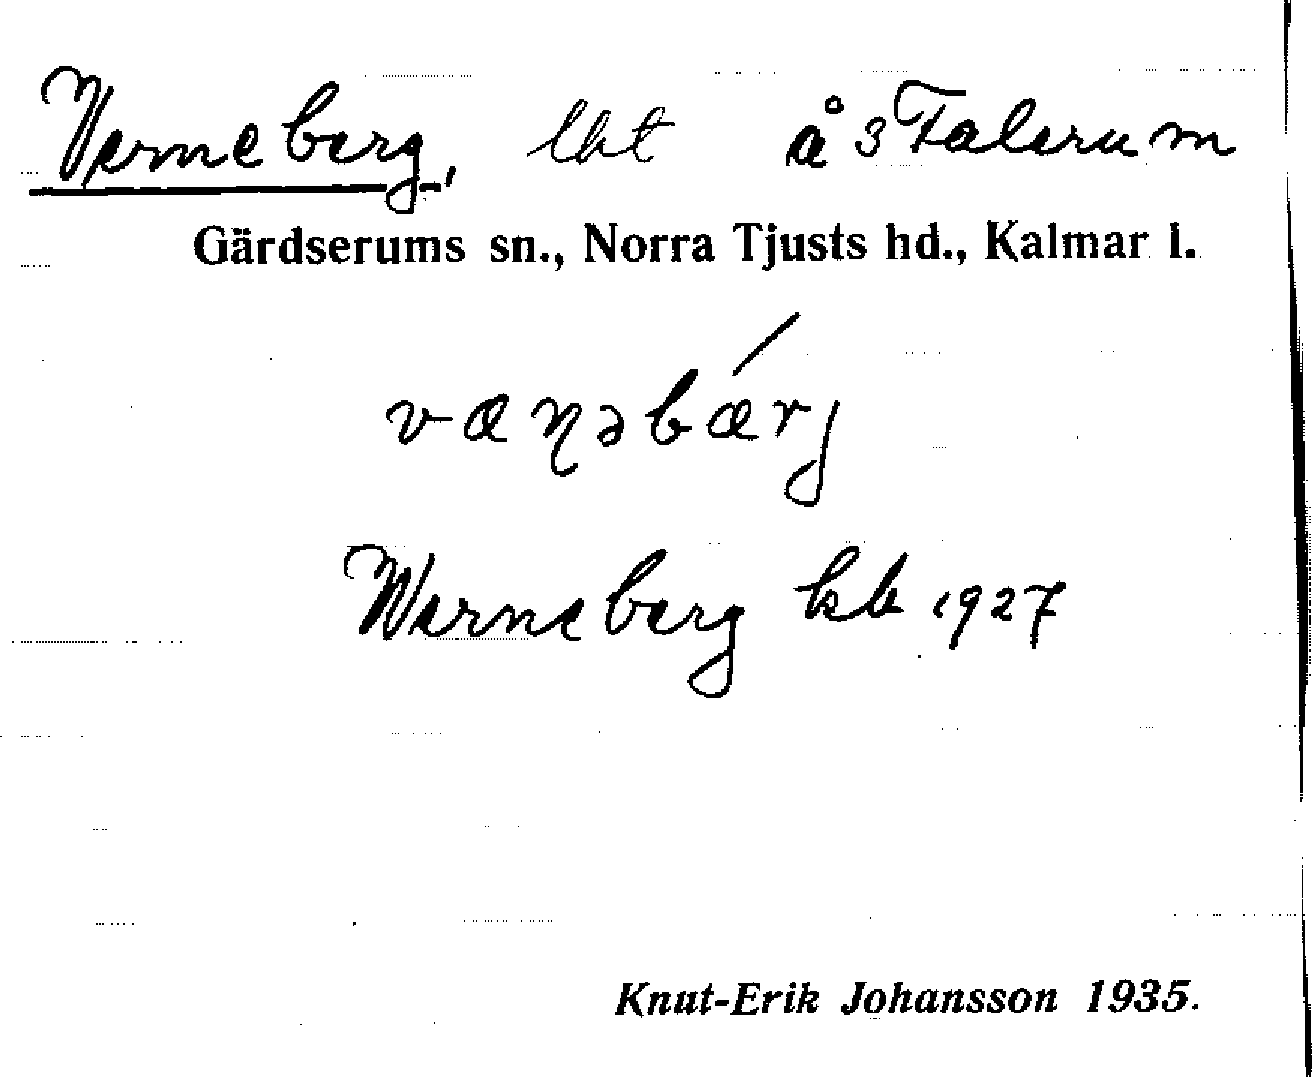 Verneberg, lht å 3 Falerum
Gärdserums sn., Norra Tjusts hd., Kalmar l.
væɳəbǽrj
Werneberg kb 1927
Knut-Erik Johansson 1935.